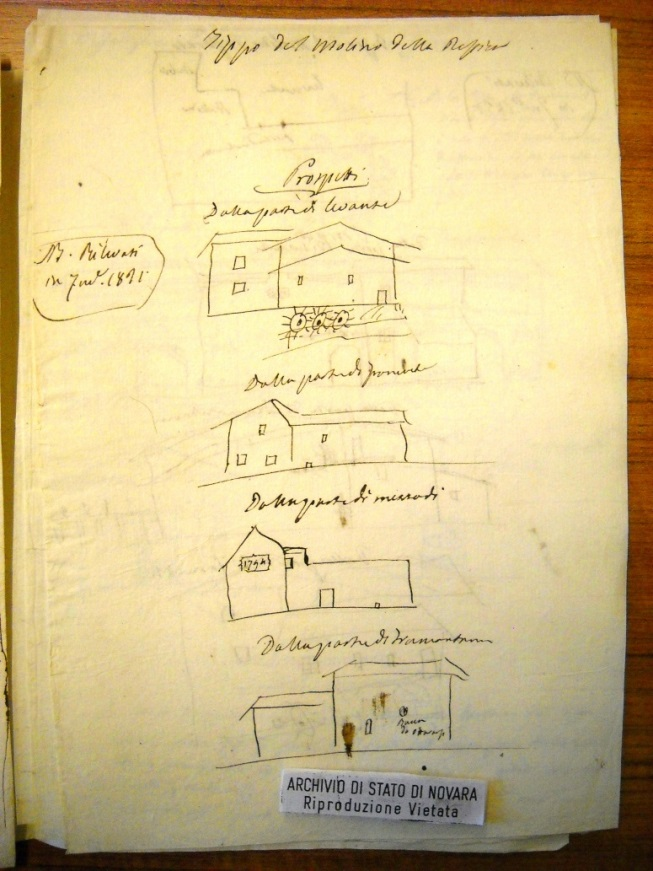 Tippo del Molino della
Prospetti
Dalla parte di levante
NB. Rilevati
in 1821
Dalla parte di ponente
Dalla parte di mezzodì
Dalla parte di tramontana
ARCHIVIO DI STATO DI NOVARA
Riproduzione Vietata